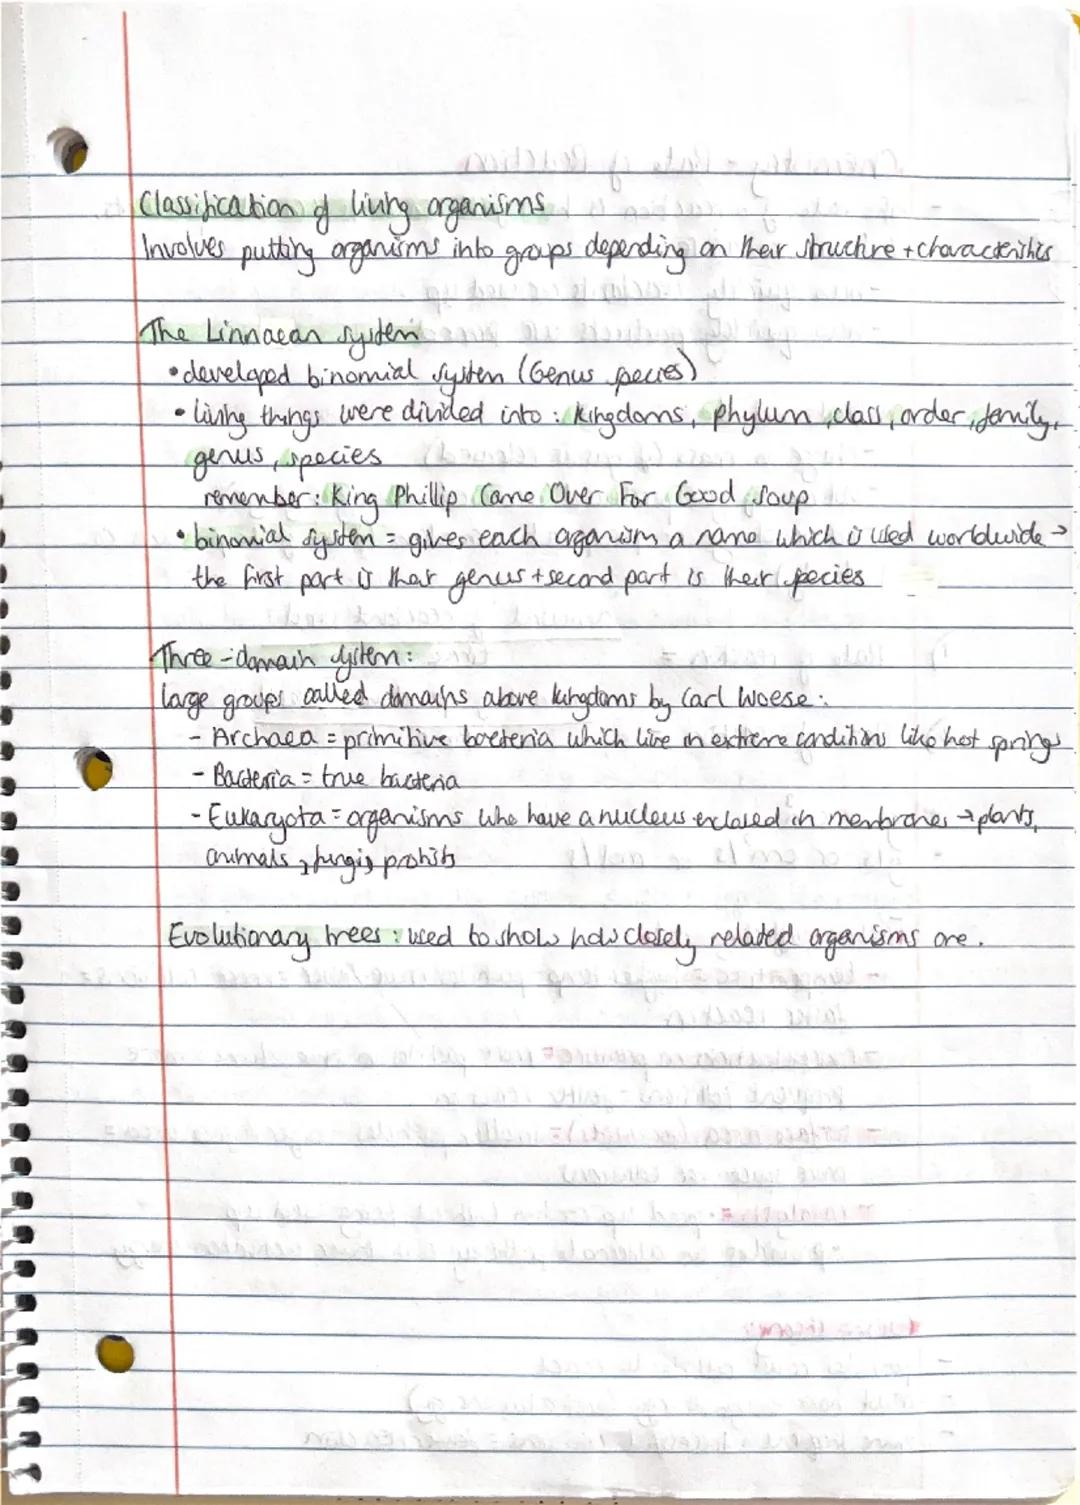 Classification of living organisms
Involves putting organisms into groups depending on their structure + characteristics
The Linnaean system
• developed binomial system (Genus species)
• living things were divided into: kingdoms, phylum, class, order, family,
genus, species
remember: King Phillip Came Over For Good Soup
• binomial system = gives each organism a name which is used worldwide →
the first part is their genus + second part is their species
Three-domain system:
large groups called domains above kingdoms by Carl Woese:
- Archaea = primitive bacteria which live in extreme conditions like hot springs
- Bacteria = true bacteria
- Eukaryota = organisms who have a nucleus enclosed in membranes → plants,
animals, fungi, protists
Evolutionary trees: used to show how closely related organisms are.